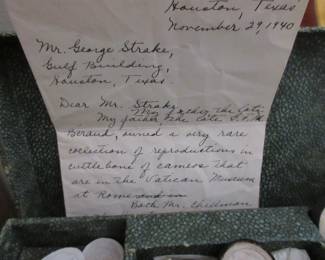 Houston, Texas
November 29, 1940
Mr. George Strake,
Gulf Building,
Houston, Texas
Dear Mr. Strake,
My father, the late
My father the late
Beraud, owned a very rare
collection of reproductions in
cuttlebone of cameos that
are in the Vatican Museum
at Rome
Both Mr.